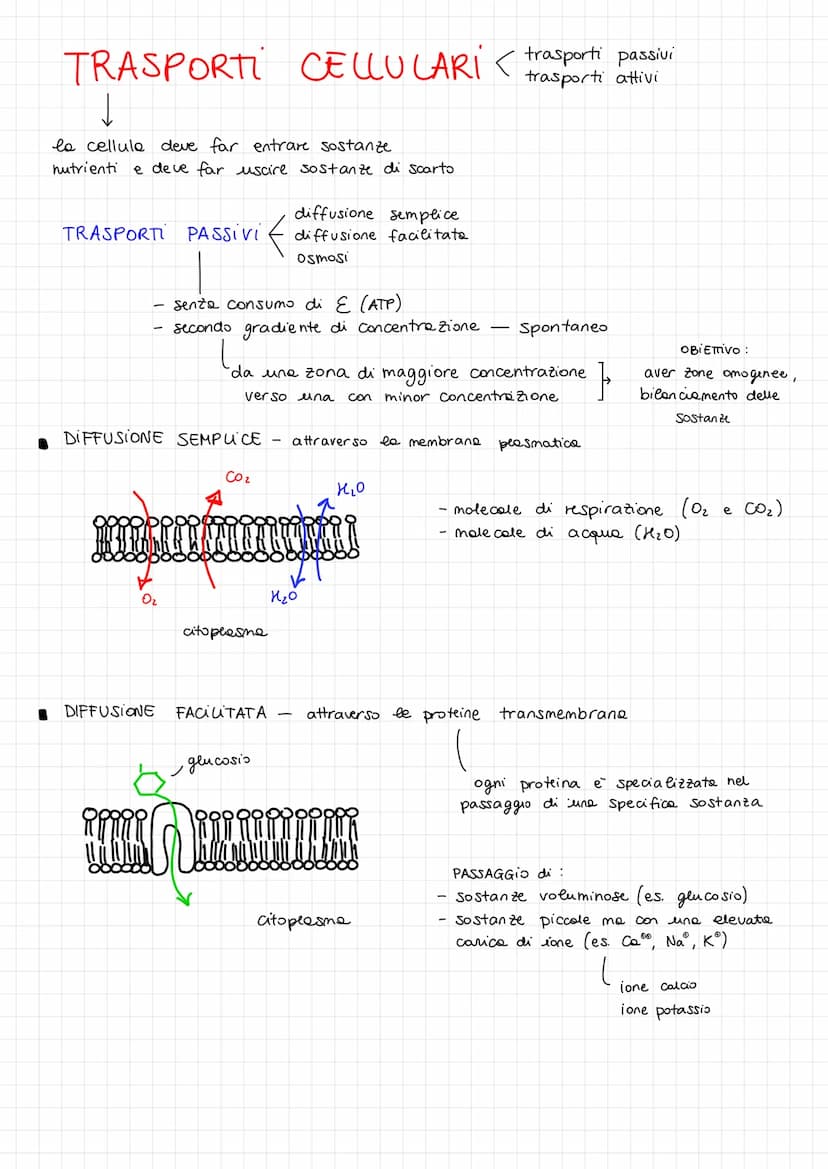 TRASPORTI CELLULARI
trasporti passivi
trasporti attivi
la cellula deve far entrare sostanze
nutrienti e deve far uscire sostanze di scarto
TRASPORTI PASSIVI
diffusione semplice
diffusione facilitata
osmosi
- senza consumo di E (ATP)
- secondo gradiente di concentrazione — spontaneo
da una zona di maggiore concentrazione
verso una con minor concentrazione
OBIETTIVO:
aver zone omogenee,
bilanciamento delle
sostanze
DIFFUSIONE SEMPLICE - attraverso la membrana plasmatica
CO₂
H₂O
O₂
H₂O
citoplasma
- molecole di respirazione (O₂ e CO₂)
- molecole di acqua (H₂O)
DIFFUSIONE FACILITATA - attraverso le proteine transmembrana
glucosio
ogni proteina è specializzata nel
passaggio di una specifica sostanza
citoplasma
PASSAGGIO di:
- sostanze voluminose (es. glucosio)
- sostanze piccole ma con una elevata
carica di ione (es. Ca⊕⊕, Na⊕, K⊕)
ione calcio
ione potassio